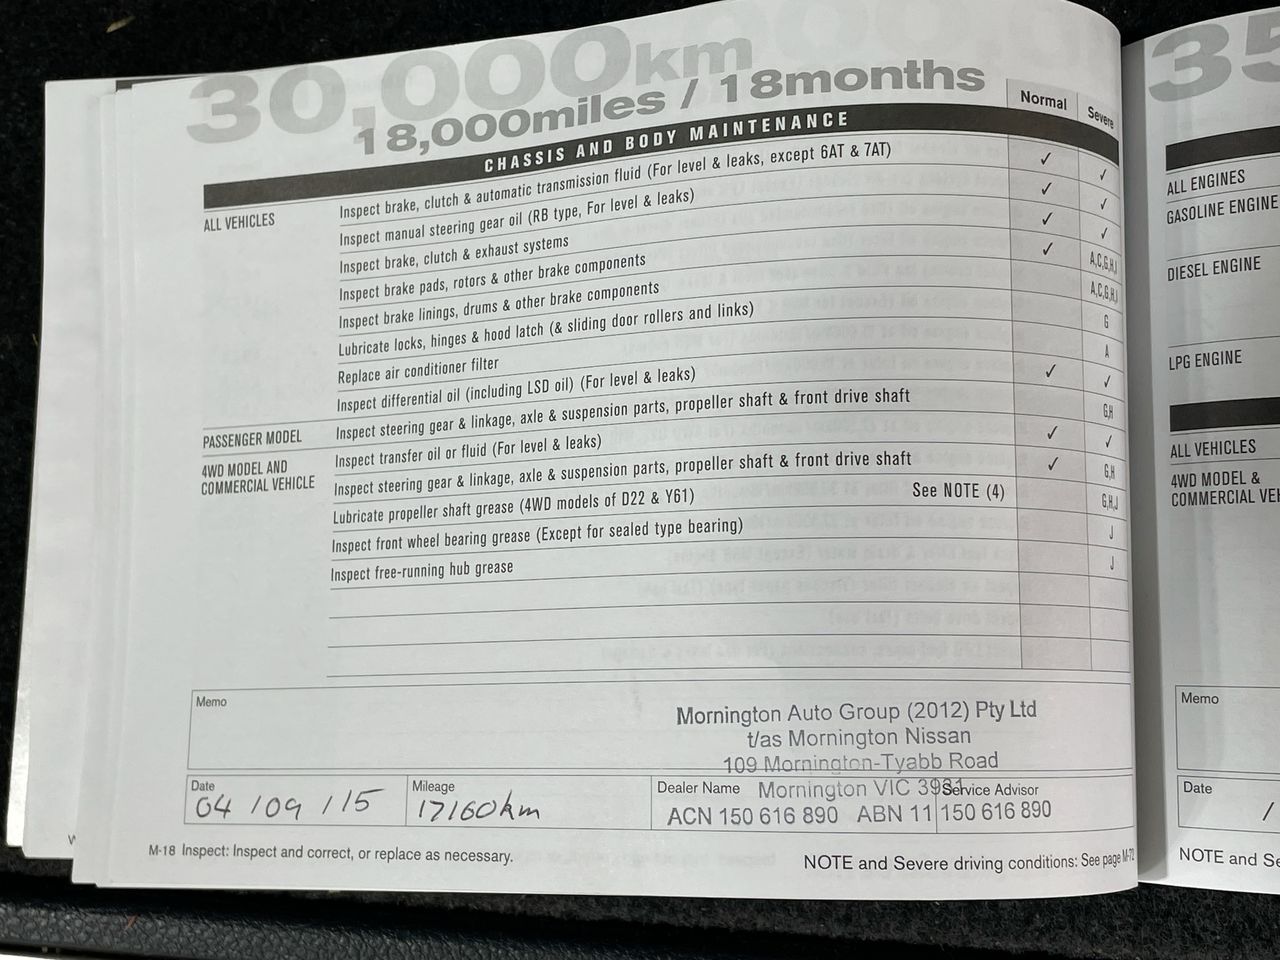 30,000km
18,000miles / 18months
Normal Severe
CHASSIS AND BODY MAINTENANCE
ALL VEHICLES Inspect brake, clutch & automatic transmission fluid (For level & leaks, except 6AT & 7AT) ✓ ✓
Inspect manual steering gear oil (RB type, For level & leaks) ✓ ✓
Inspect brake, clutch & exhaust systems ✓ ✓
Inspect brake pads, rotors & other brake components ✓ A,C,G,H,I
Inspect brake linings, drums & other brake components A,C,G,H,I
Lubricate locks, hinges & hood latch (& sliding door rollers and links) G
Replace air conditioner filter A
Inspect differential oil (including LSD oil) (For level & leaks) ✓ ✓
PASSENGER MODEL Inspect steering gear & linkage, axle & suspension parts, propeller shaft & front drive shaft G,H
4WD MODEL AND
COMMERCIAL VEHICLE
Inspect transfer oil or fluid (For level & leaks) ✓ ✓
Inspect steering gear & linkage, axle & suspension parts, propeller shaft & front drive shaft ✓ G,H
Lubricate propeller shaft grease (4WD models of D22 & Y61) See NOTE (4) G,H,J
Inspect front wheel bearing grease (Except for sealed type bearing) J
Inspect free-running hub grease J
Memo
Mornington Auto Group (2012) Pty Ltd
t/as Mornington Nissan
109 Mornington-Tyabb Road
Mornington VIC 3931
ACN 150 616 890 ABN 11 150 616 890
Date
04 / 09 / 15
Mileage
17160km
Dealer Name
Service Advisor
M-18 Inspect: Inspect and correct, or replace as necessary.
NOTE and Severe driving conditions: See page
35
ALL ENGINES
GASOLINE ENGINE
DIESEL ENGINE
LPG ENGINE
ALL VEHICLES
4WD MODEL &
COMMERCIAL
Memo
Date
/
NOTE and